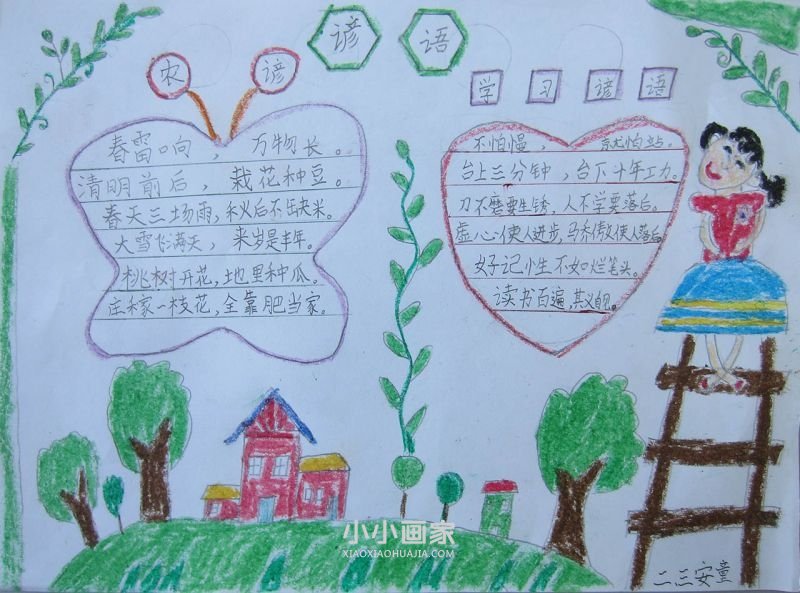 谚语
农谚
春雷响，万物长。
清明前后，栽花种豆。
春天三场雨，秋后不缺米。
大雪飞满天，来岁是丰年。
桃树开花，地里种瓜。
庄稼一枝花，全靠肥当家。
学习谚语
不怕慢，就怕站。
台上三分钟，台下十年工力。
刀不磨要生锈，人不学要落后。
虚心使人进步，骄傲使人落后。
好记性不如烂笔头。
读书百遍，其义自见。
小小画家
XIAOXIAOHUAJIA.COM
二三安童